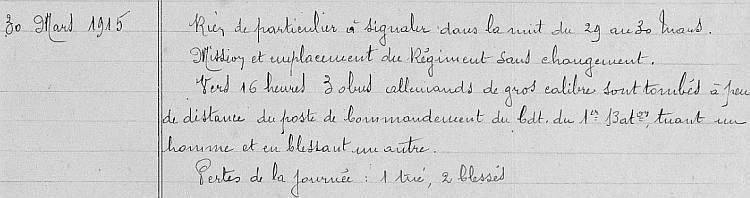 30 Mars 1915 Rien de particulier à signaler dans la nuit du 29 au 30 Mars.
Mission et emplacement du Régiment sans changement.
Vers 16 heures 3 obus allemands de gros calibre sont tombés à peu
de distance du poste de Commandement du Cdt. du 1er Baton, tuant un
homme et en blessant un autre.
Pertes de la journée : 1 tué, 2 blessés